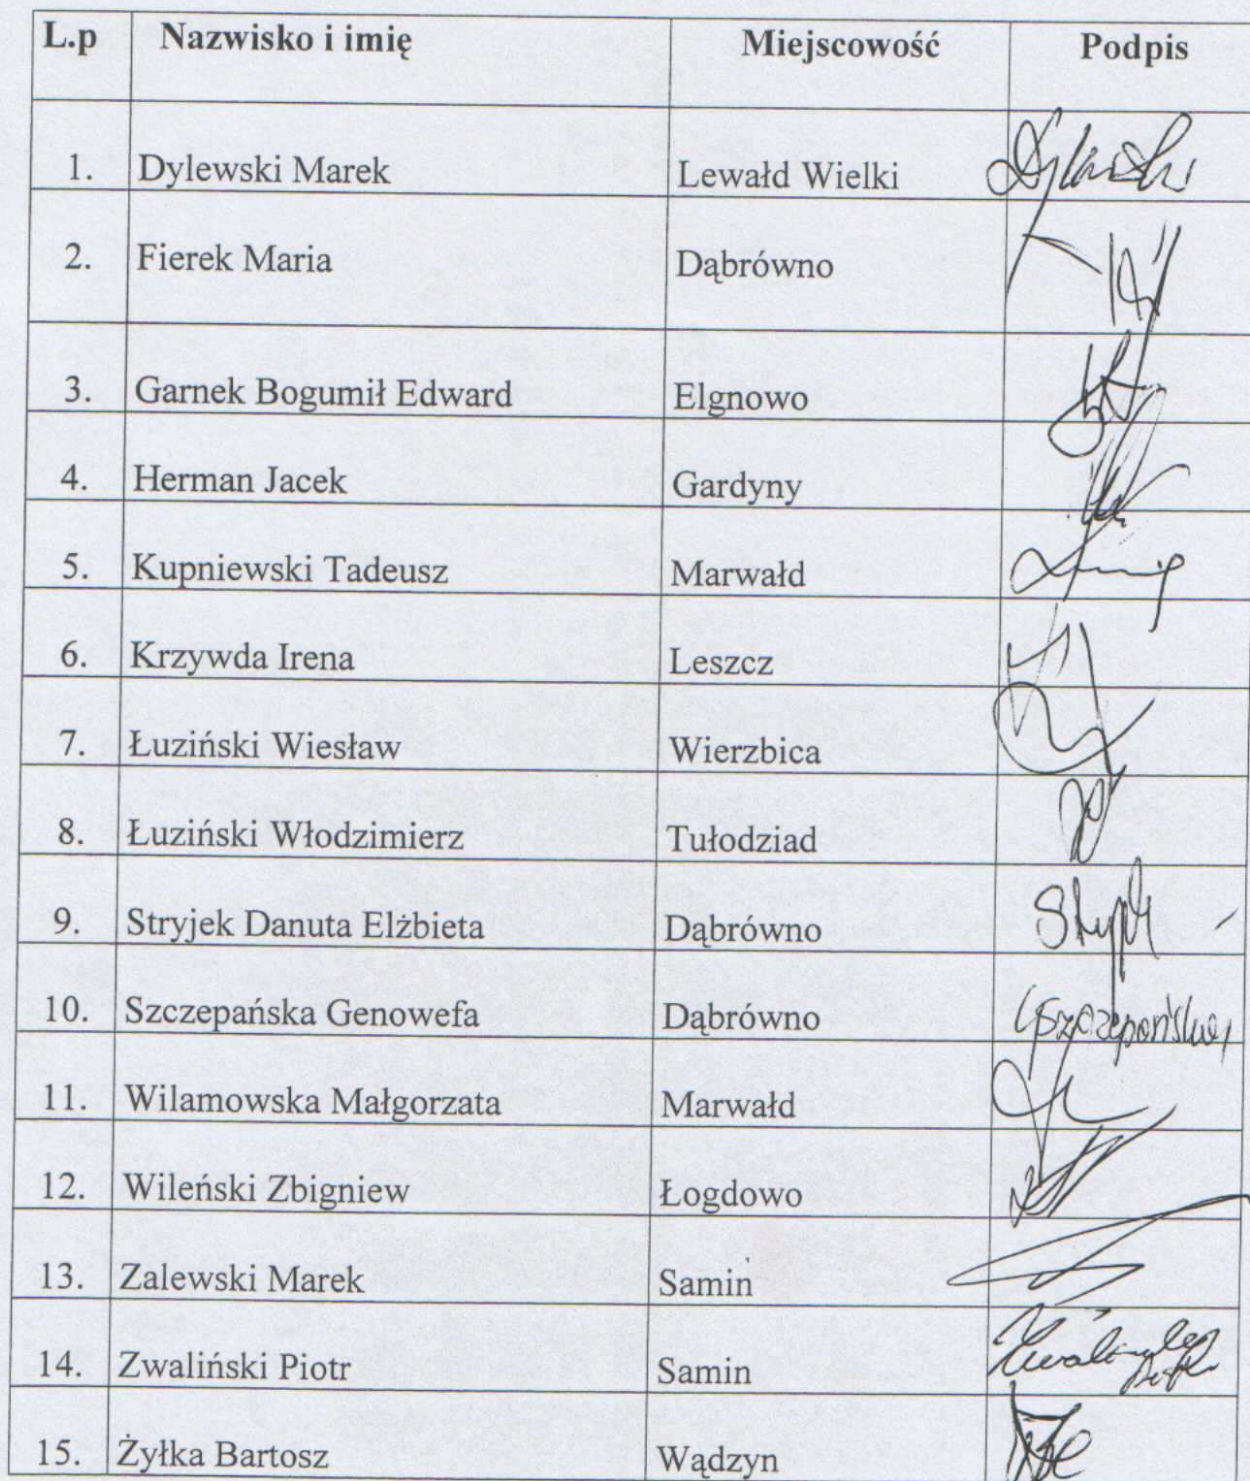 L.p Nazwisko i imię Miejscowość Podpis
1. Dylewski Marek Lewałd Wielki
2. Fierek Maria Dąbrówno
3. Garnek Bogumił Edward Elgnowo
4. Herman Jacek Gardyny
5. Kupniewski Tadeusz Marwałd
6. Krzywda Irena Leszcz
7. Łuziński Wiesław Wierzbica
8. Łuziński Włodzimierz Tułodziad
9. Stryjek Danuta Elżbieta Dąbrówno
10. Szczepańska Genowefa Dąbrówno
11. Wilamowska Małgorzata Marwałd
12. Wileński Zbigniew Łogdowo
13. Zalewski Marek Samin
14. Zwaliński Piotr Samin
15. Żyłka Bartosz Wądzyn